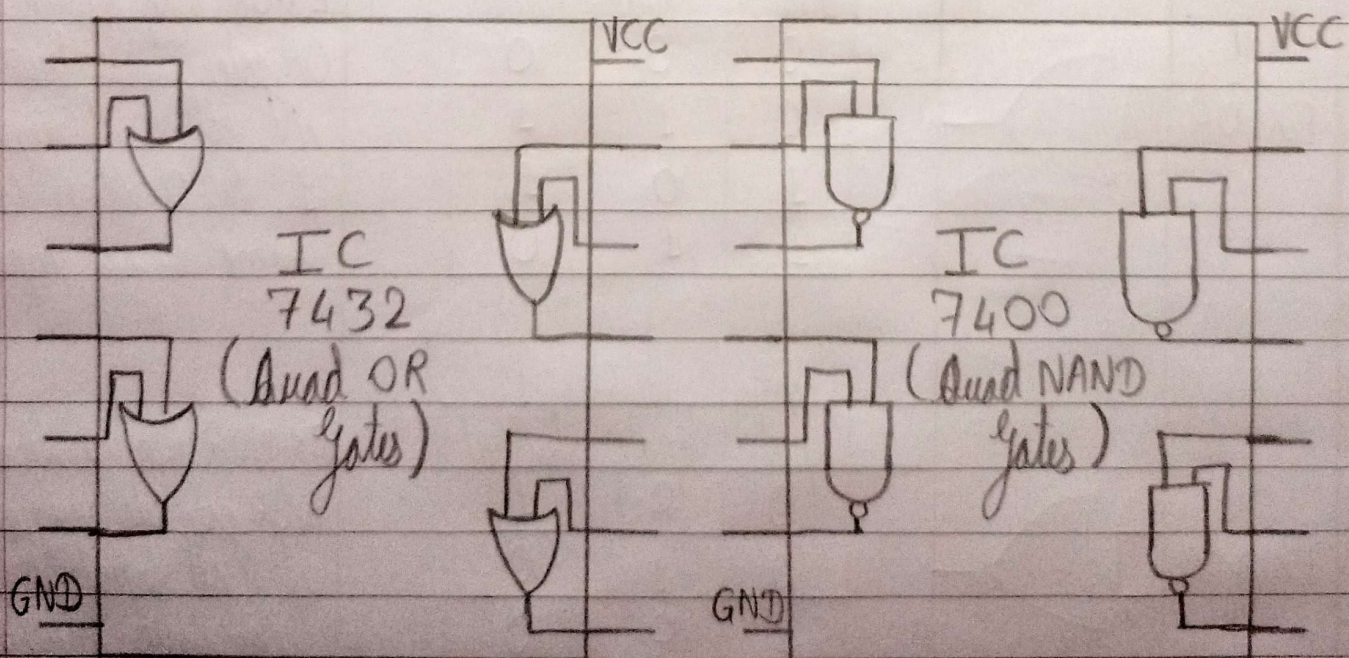 VCC
IC
7432
(Quad OR
Gates)
GND
VCC
IC
7400
(Quad NAND
Gates)
GND